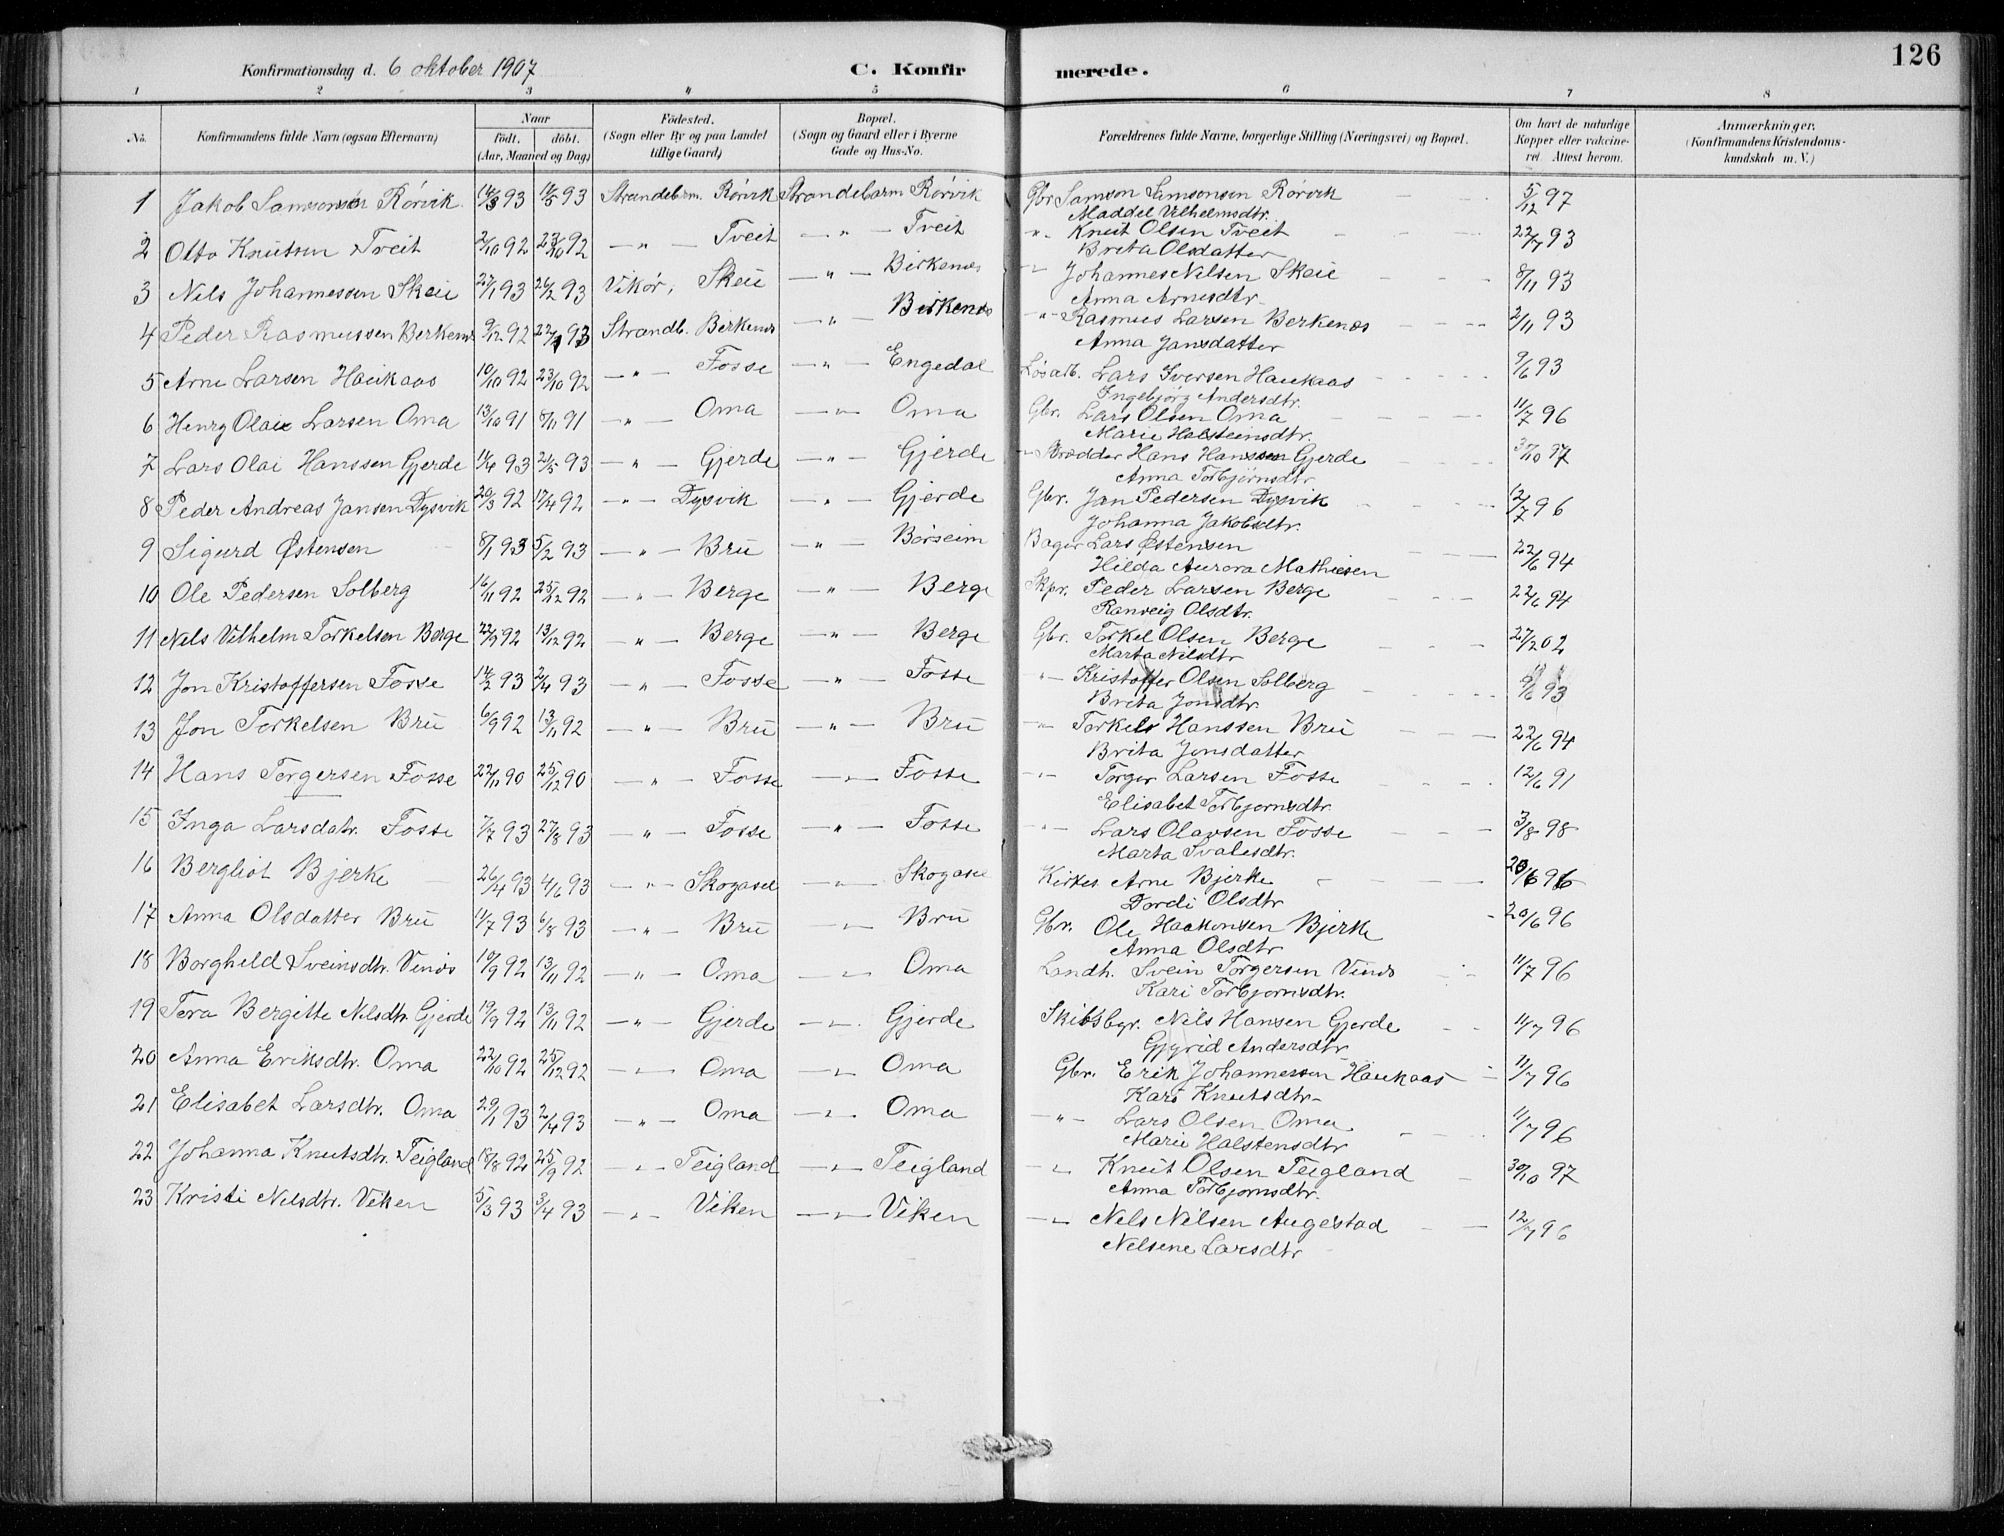 126
Konfirmationsdag d. 6 oktober 1907 C. Konfirmerede.
1 2 3 4 5 6 7 8
No. Konfirmandens fulde Navn (ogsaa Efternavn) Naar født. døbt. (Aar, Maaned og Dag) Födested. (Sogn eller By og paa Landet tillige Gaard) Bopæl. (Sogn og Gaard eller i Byerne Gade og Hus-No. Forældrenes fulde Navne, borgerlige Stilling (Næringsvei) og Bopæl. Om havt de naturlige Kopper eller vaccineret. Attest herom. Anmærkninger. (Konfirmandens Kristendomskundskab m. V.)
1 Jakob Samsonsen Rørvik 14/3 93 14/5 93 Strandebarm. Rørvik Strandebarm Rørvik Gbr Samson Samsonsen Rørvik 5/12 97
Maddel Vilhelmsdtr.
2 Otto Knutsen Tveit 2/10 92 23/10 92 — " — Tveit — " — Tveit " Knut Olsen Tveit 22/7 93
Brita Olsdatter
3 Nels Johannessen Skeie 27/1 93 26/2 93 Vikør, Skeie — " — Berkenes " Johannes Nilsen Skeie 8/11 93
Anna Arnesdtr
4 Peder Rasmussen Berkenes 9/12 92 22/1 93 Strandb. Berkenes — " — Birkenæs " Rasmus Larsen Berkenæs 2/11 93
Anna Jansdatter
5 Arne Larsen Haukaas 10/10 92 23/10 92 — " — Fosse — " — Engedal Løsarb. Lars Iversen Haukaas 9/6 93
Ingebjørg Andersdtr.
6 Henry Olai Larsen Oma 13/10 91 8/11 91 — " — Oma — " — Oma Gbr. Lars Olsen Oma 11/7 96
Marie Halsteinsdtr.
7 Lars Olai Hanssen Gjerde 14/4 93 21/5 93 — " — Gjerde — " — Gjerde " Brødder Hans Hanssen Gjerde 30/10 97
Anna Torbjørnsdtr
8 Peder Andreas Jansen Dysvik 20/3 92 17/4 92 — " — Dysvik — " — Gjerde Gbr. Jan Pedersen Dysvik 12/7 96
Johanna Jakobsdtr.
9 Sigurd Østensen 8/1 93 5/2 93 — " — Bru — " — Børseim Bager Lars Østensen 22/6 94
Hilda Aurora Mathiesen
10 Ole Pedersen Solberg 16/11 92 25/12 92 — " — Berge — " — Berge Skpr. Peder Larsen Berge 22/6 94
Ranveig Olsdtr.
11 Nels Vilhelm Torkelsen Berge 22/9 92 13/12 92 — " — Berge — " — Berge Gbr. Torkel Olsen Berge 27/2 02
Marta Nilsdtr
12 Jon Kristoffersen Fosse 14/2 93 2/4 93 — " — Fosse — " — Fosse " Kristoffer Olsen Solberg 9/6 93
Brita Jonsdtr.
13 Jon Torkelsen Bru 6/9 92 13/11 92 — " — Bru — " — Bru " Torkels Hanssen Bru 22/6 94
Brita Jonsdatter
14 Hans Torgersen Fosse 22/11 90 25/12 90 — " — Fosse — " — Fosse " Torger Larsen Fosse 12/6 91
Elisabet Torbjornsdtr.
15 Inga Larsdatr. Fosse 7/7 93 27/8 93 — " — Fosse — " — Fosse " Lars Olavsen Fosse 3/8 98
Marta Ivalesdtr.
16 Bergliot Bjerke 26/4 93 4/6 93 — " — Skogasel — " — Skogasel Kirkes. Arne Bjerke 20/6 96
Dordi Olsdtr
17 Anna Olsdatter Bru 11/7 93 6/8 93 — " — Bru — " — Bru Gbr. Ole Haakonsen Bjerke 20/6 96
Anna Olsdtr
18 Borghild Sveinsdtr. Vinds 10/9 92 13/11 92 — " — Oma — " — Oma Landh. Svein Torgersen Vinds 11/7 96
Kari Torbjørnsdtr.
19 Tora Bergitte Nilsdtr. Gjerde 19/9 92 13/11 92 — " — Gjerde — " — Gjerde Skibsbgr. Nils Hansen Gjerde 11/7 96
Gjyrid Andersdtr
20 Anna Eriksdtr. Oma 22/10 92 25/12 92 — " — Oma — " — Oma Gbr. Erik Johannessen Haukaas 11/7 96
Kari Knutsdtr
21 Elisabet Larsdtr. Oma 29/1 93 2/4 93 — " — Oma — " — Oma — " Lars Olsen Oma 11/7 96
Marie Halstensdtr
22 Johanna Knutsdtr. Teigland 18/8 92 25/9 92 — " — Teigland — " — Teigland — " Knut Olsen Teigland 30/10 97
Anna Torbjornsdtr.
23 Kristi Nelsdtr. Viken 5/3 93 3/4 93 — " — Viken — " — Viken — " Nels Nilsen Augestad 12/7 96
Nelsene Larsdtr